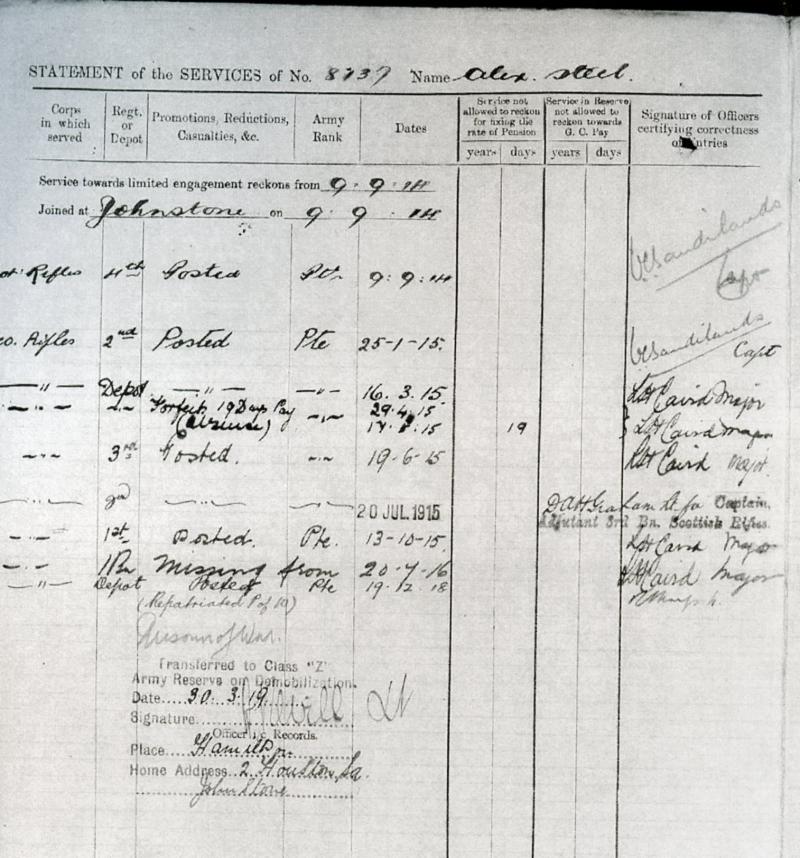 STATEMENT of the SERVICES of No. 8737 Name Alex. Steel.
Corps in which served
Regt. or Depot
Promotions, Reductions, Casualties, &c.
Army Rank
Dates
Service not allowed to reckon for fixing the rate of Pension
years days
Service in Reserve not allowed to reckon towards G. C. Pay
years days
Signature of Officers certifying correctness of Entries
Service towards limited engagement reckons from 9.9.14
Joined at Johnstone on 9.9.14
Rifles 4th Posted Pte 9.9.14 Sandilands Capt
Rifles 2nd Posted Pte 25-1-15. Sandilands Capt
—"— Depot —"— —"— 16.3.15 Caird Major
—"— —"— Forfeits 19 Days Pay —"— 29.4.15
(absence) 15 19 Caird Major
—"— 3rd Posted. —"— 19-6-15 Caird Major.
—"— —"— —"— 20 JUL. 1915 Graham Lt for Captain,
Adjutant 3rd Bn. Scottish Rifles.
1st Posted. Pte. 13-10-15. Caird Major
—"— 1 Bn Missing from 20-7-16 Caird Major
—"— Depot Posted Pte 19.12.18
(Repatriated P of W)
Prisoner of War.
Transferred to Class "Z"
Army Reserve on Demobilization.
Date 30.3.19
Signature Lt
Officer i/c Records.
Place Hamilton
Home Address 2 Houston Sq.
Johnstone